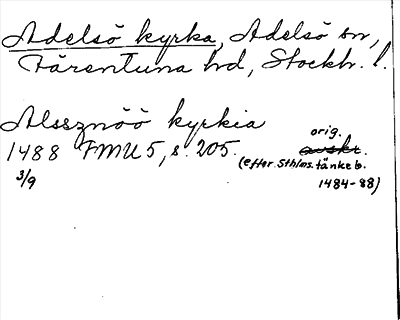 Adelsö kyrka, Adelsö sn,
Färentuna hd, Stockh. l.
Alssznöö kyrkia
orig.
1488 FMU 5, s. 205. avskr.
(efter Sthlms tänkeb.
3/9
1484-88)